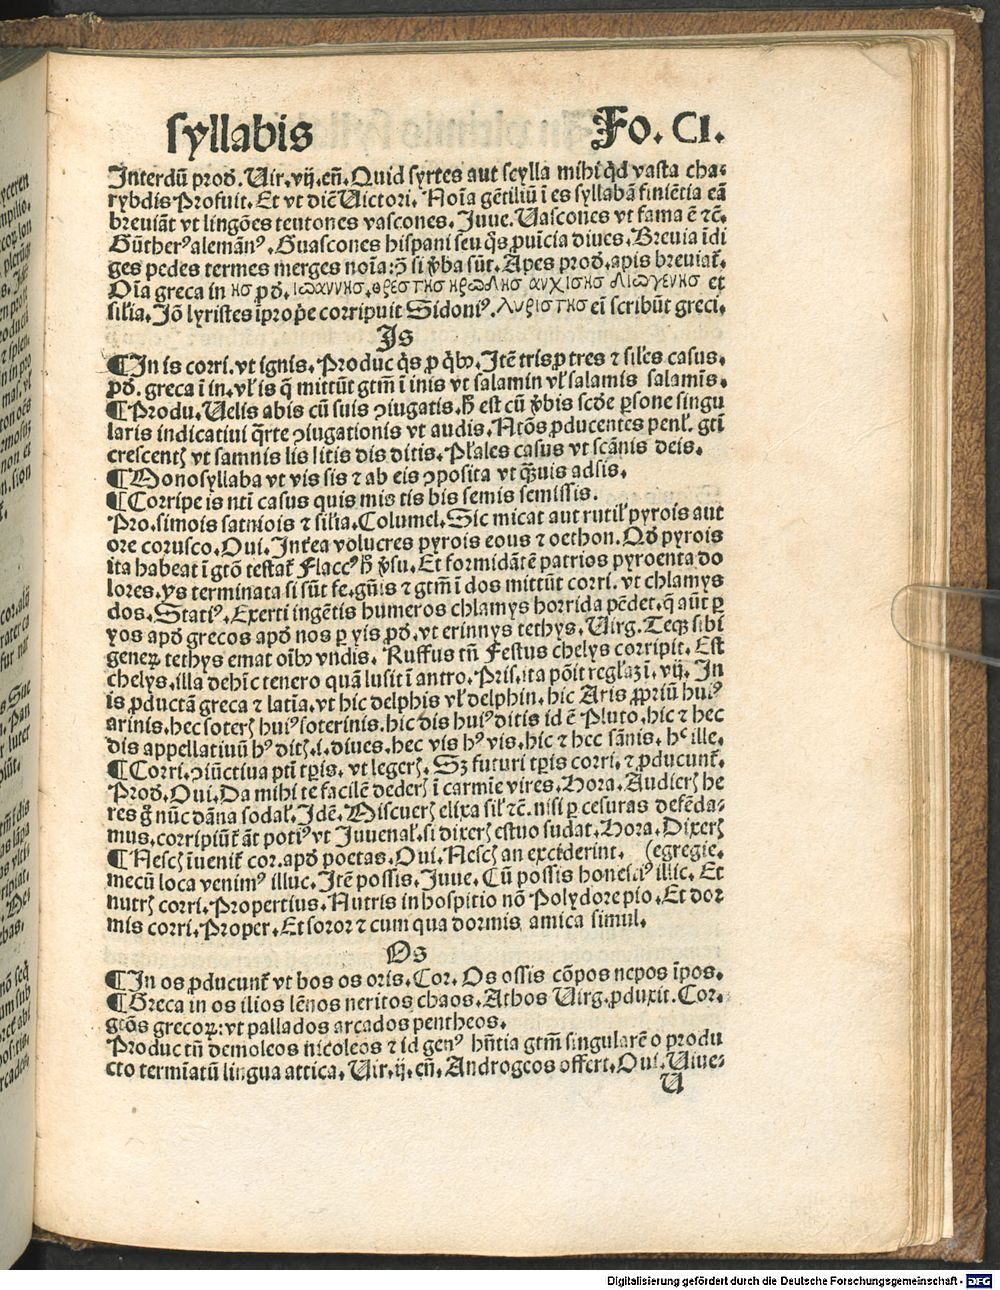 syllabis Fo. CI.
Interdū prod. Uir. vij. en̄. Quid syrtes aut scylla mihi qd vasta cha⸗
rybdis Profuit. Et vt diē Uictori. Noīa gētiliū ī es syllabā finiētia eā
breuiāt vt lingōes teutones vascones. Juue. Uascones vt fama ē ⁊c̄.
Gūtherꝰ alemānꝰ. Guascones hispani seu q̄s ꝓuīcia diues. Breuia īdi
ges pedes termes merges noīa: ꝙ̄ si v̄ba sūt. Apes prod. apis breuiat̄.
Oīa greca in ησ ꝓd. ιωαννησ. ορεστησ ηρωδησ αγχισησ διωγενησ et
silīa. Jō lyristes īprop̄e corripuit Sidoniꝰ. λυριστησ eī scribūt greci.
Is
¶ In is corri. vt ignis. Produc q̄s ꝓ q̄bꝰ. Itē tris ꝓ tres ⁊ sil̄es casus.
ꝓd. greca ī in. vl̄ is q̄ mittūt gtm̄ ī inis vt salamin vl̄ salamis salamīs.
¶ Produ. Uelis abis cū suis ꝯiugatis. h̄ est cū v̄bis scd̄e ꝑsone singu
laris indicatiui q̄rte ꝯiugationis vt audis. Ntōs ꝓducentes penl̄. gti
crescentꝭ vt samnis lis litis dis ditis. Pl̄ales casus vt scānis deis.
¶ Monosyllaba vt vis sis ⁊ ab eis ꝯposita vt q̄uis adsis.
¶ Corripe is nti casus quis mis tis bis semis semissis.
Pro. simois satniois ⁊ silia. Columel. Sic micat aut rutil̄ pyrois aut
ore corusco. Oui. Int̄ea volucres pyrois eous ⁊ oethon. Qd pyrois
ita habeat ī gtō testat̄ Flaccꝰ h̄ v̄su. Et formidātē patrios pyroenta do
lores. ys terminata si sūt fe. gn̄is ⁊ gtm̄ ī dos mittūt corri. vt chlamys
dos. Statiꝰ. Exerti ingētis humeros chlamys horrida pēdet. q̄ aūt ꝑ
yos apd grecos apd nos ꝑ yis ꝓd. vt erinnys tethys. Uirg. Teqꝫ sibi
generꝝ tethys emat oībꝰ vndis. Ruffus tn̄ Festus chelys corripit. Est
chelys. illa dehīc tenero quā lusit ī antro. Pris. ita pōit reglaꝫ ī. vij. In
is ꝓductā greca ⁊ latīa. vt hic delphis vl̄ delphin. hic Aris ꝓpriū huiꝰ
arinis. hec soterꝭ huiꝰ soterinis. hic dis huiꝰ ditis id ē Pluto. hic ⁊ hec
dis appellatiuū hꝰ ditꝭ. i. diues. hec vis hꝰ vis. hic ⁊ hec sānis. hc ille.
¶ Corri. ꝯiūctiua ptī tp̄is. vt legerꝭ. Sꝫ futuri tp̄is corri. ⁊ ꝓducunt̄.
Prod. Oui. Da mihi te facilē dederꝭ ī carmīe vires. Hora. Audierꝭ he
res g̊ nūc dāna sodal̄. Idē. Miscuerꝭ elixa sil̄ ⁊c̄. nisi ꝑ cesuras defēda⸗
mus. corripiūt̄ āt potiꝰ vt Juuenal̄. si dixerꝭ estuo sudat. Hora. Dixerꝭ
¶ Nescꝭ īuenit̄ cor. apd poetas. Oui. Nescꝭ an excederint. (egregie.
mecū loca venimꝰ illuc. Itē possis. Juue. Cū possis honestiꝰ illic. Et
nutrꝭ corri. Propertius. Nutris in hospitio nō Polydore pio. Et dor
mis corri. Proper. Et soror ⁊ cum qua dormis amica simul.
Os
¶ In os ꝓducunt̄ vt bos os oris. Cor. Os ossis cōpos nepos īpos.
¶ Greca in os ilios lēnos neritos chaos. Athos Uirg. ꝓduxit. Cor.
gtōs grecoꝝ: vt pallados arcados pentheos.
Produc tn̄ demoleos nicoleos ⁊ id genꝰ hn̄tia gtm̄ singularē o produ
cto termīatū lingua attica. Uir. ij. en̄. Androgeos offert. Oui. Uiue⸗
U
Digitalisierung gefördert durch die Deutsche Forschungsgemeinschaft - DFG